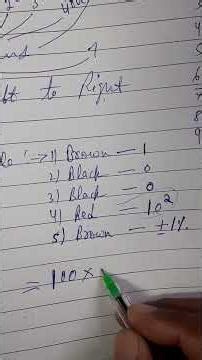 4
to Right
1) Brown — 1
2) Black — 0
3) Black — 0
4) Red — 10²
5) Brown — ±1%
= 100 ×